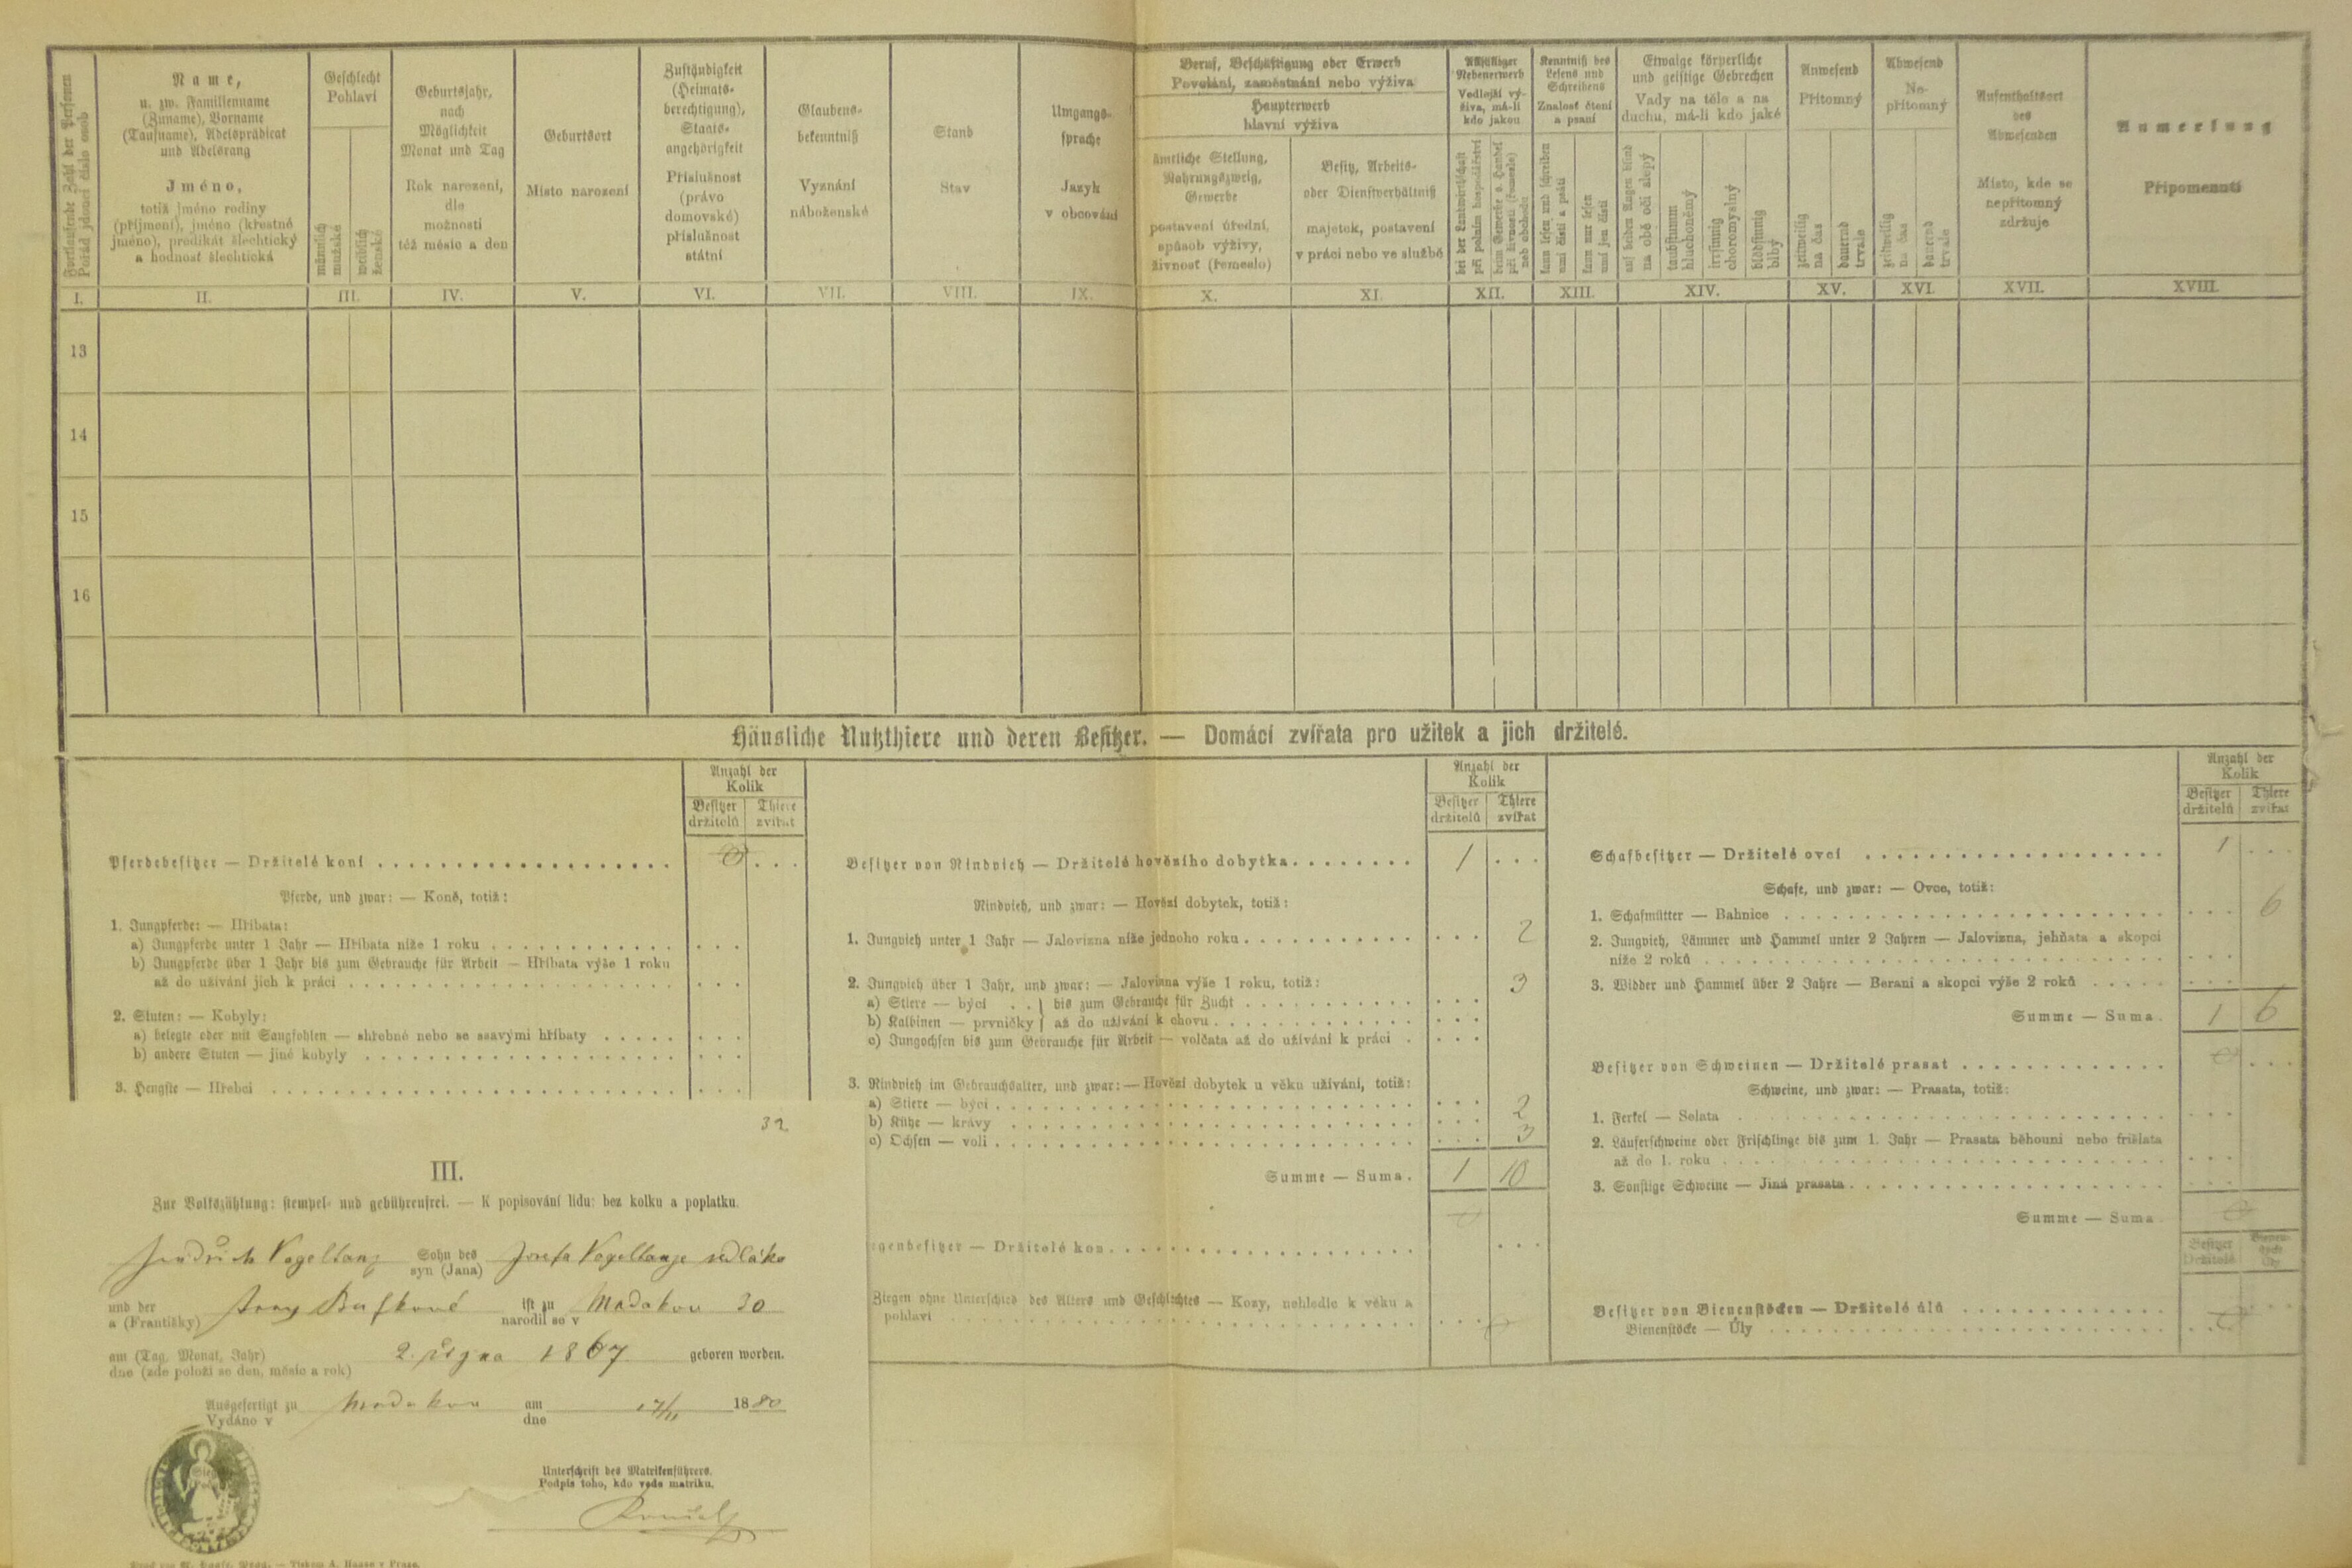 Fortlaufende Zahl der Personen
Pořád jdoucí číslo osob
Name,
u. zw. Familienname
(Zuname), Vorname
(Taufname), Adelsprädicat
und Adelsrang
Jméno,
totiž jméno rodiny
(příjmení), jméno (křestné
jméno), predikát šlechtický
a hodnost šlechtická
Geschlecht
Pohlaví
männlich
mužské
weiblich
ženské
Geburtsjahr,
nach
Möglichkeit
Monat und Tag
Rok narození,
dle
možnosti
též měsíc a den
Geburtsort
Místo narození
Zuständigkeit
(Heimats-
berechtigung),
Staats-
angehörigkeit
Příslušnost
(právo
domovské)
příslušnost
státní
Glaubens-
bekenntniß
Vyznání
náboženské
Stand
Stav
Umgangs-
sprache
Jazyk
v obcování
Beruf, Beschäftigung oder Erwerb
Povolání, zaměstnání nebo výživa
Haupterwerb
hlavní výživa
ämtliche Stellung,
Nahrungszweig,
Gewerbe
postavení úřední,
spůsob výživy,
živnost (řemeslo)
Besitz, Arbeits-
oder Dienstverhältniß
majetek, postavení
v práci nebo ve službě
Allfälliger
Nebenerwerb
Vedlejší vý-
živa, má-li
kdo jakou
bei der Landwirthschaft
při polním hospodářství
beim Gewerbe o. Handel
při živnosti (řemesle)
neb obchodu
Kenntniß des
Lesens und
Schreibens
Znalost čtení
a psaní
kann lesen und schreiben
umí čísti a psáti
kann nur lesen
umí jen čísti
Etwaige körperliche
und geistige Gebrechen
Vady na těle a na
duchu, má-li kdo jaké
auf beiden Augen blind
na obě oči slepý
taubstumm
hluchoněmý
irrsinnig
choromyslný
blödsinnig
blbý
Anwesend
Přítomný
zeitweilig
na čas
dauernd
trvale
Abwesend
Ne-
přítomný
zeitweilig
na čas
dauernd
trvale
Aufenthaltsort
des
Abwesenden
Místo, kde se
nepřítomný
zdržuje
Anmerkung
Připomenutí
I. II. III. IV. V. VI. VII. VIII. IX. X. XI. XII. XIII. XIV. XV. XVI. XVII. XVIII.
13
14
15
16
Häusliche Nutzthiere und deren Besitzer. — Domácí zvířata pro užitek a jich držitelé.
Anzahl der
Kolik
Besitzer Thiere
držitelů zvířat
Pferdebesitzer — Držitelé koní 0
Pferde, und zwar: — Koně, totiž:
1. Jungpferde: — Hříbata:
a) Jungpferde unter 1 Jahr — Hříbata níže 1 roku
b) Jungpferde über 1 Jahr bis zum Gebrauche für Arbeit — Hříbata výše 1 roku
až do užívání jich k práci
2. Stuten: — Kobyly:
a) belegte oder mit Saugfohlen — shřebné nebo se ssavými hříbaty
b) andere Stuten — jiné kobyly
3. Hengste — Hřebci
Anzahl der
Kolik
Besitzer Thiere
držitelů zvířat
Besitzer von Rindvieh — Držitelé hovězího dobytka 1
Rindvieh, und zwar: — Hovězí dobytek, totiž:
1. Jungvieh unter 1 Jahr — Jalovizna níže jednoho roku 2
2. Jungvieh über 1 Jahr, und zwar: — Jalovizna výše 1 roku, totiž: 3
a) Stiere — býci . . } bis zum Gebrauche für Zucht
b) Kalbinen — prvničky } až do užívání k chovu
c) Jungochsen bis zum Gebrauche für Arbeit — volčata až do užívání k práci
3. Rindvieh im Gebrauchsalter, und zwar: — Hovězí dobytek u věku užívání, totiž:
a) Stiere — býci
b) Kühe — krávy 2
c) Ochsen — voli 3
Summe — Suma. 1 10
genbesitzer — Držitelé koz 0
Ziegen ohne Unterschied des Alters und Geschlechtes — Kozy, nehledíc k věku a
pohlaví 0
Anzahl der
Kolik
Besitzer Thiere
držitelů zvířat
Schafbesitzer — Držitelé ovcí 1
Schafe, und zwar: — Ovce, totiž:
1. Schafmütter — Bahnice 6
2. Jungvieh, Lämmer und Hammel unter 2 Jahren — Jalovizna, jehňata a skopci
níže 2 roků
3. Widder und Hammel über 2 Jahre — Berani a skopci výše 2 roků
Summe — Suma. 1 6
Besitzer von Schweinen — Držitelé prasat 0
Schweine, und zwar: — Prasata, totiž:
1. Ferkel — Selata
2. Läuferschweine oder Frischlinge bis zum 1. Jahr — Prasata běhouni nebo frišlata
až do 1. roku
3. Sonstige Schweine — Jiná prasata
Summe — Suma 0
Besitzer Bienen-
Držitelé stöcke
Úly
Besitzer von Bienenstöcken — Držitelé úlů
Bienenstöcke — Úly 0
32
III.
Zur Volkszählung: stempel- und gebührenfrei. — K popisování lidu: bez kolku a poplatku.
Jindřich Vogeltanz Sohn des Josefa Vogeltanze sedláka
syn (Jana)
und der Anny ist zu 30
a (Františky) narodil se v
am (Tag, Monat, Jahr) 2. října 1867 geboren worden.
dne (zde položí se den, měsíc a rok)
Ausgefertigt zu am 17/11 1880
Vydáno v dne
Unterschrift des Matrikenführers.
Podpis toho, kdo vede matriku.
Druck von A. Haase, Prag. — Tiskem A. Haase v Praze.